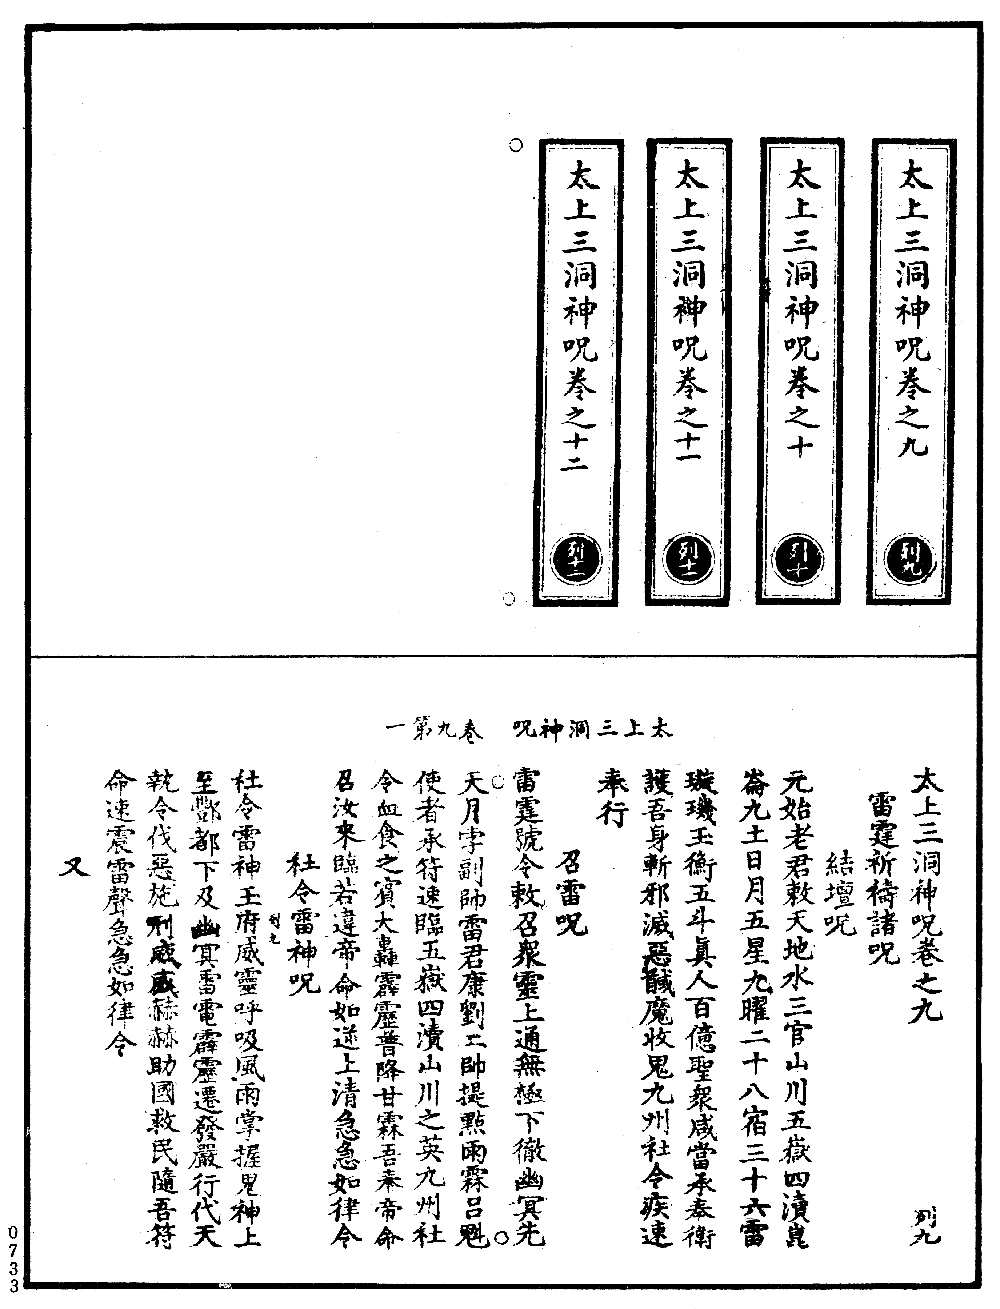 太上三洞神咒卷之九
列九
太上三洞神咒卷之十
列十
太上三洞神咒卷之十一
列十一
太上三洞神咒卷之十二
列十二
太上三洞神咒 卷九第一
太上三洞神咒卷之九 列九
雷霆祈禱諸咒
結壇咒
元始老君敕天地水三官山川五嶽四瀆崑
崙九土日月五星九曜二十八宿三十六雷
璇璣玉衡五斗眞人百億聖衆咸當承奉衛
護吾身斬邪滅惡馘魔收鬼九州社令疾速
奉行
召雷咒
雷霆號令敕召衆靈上通無極下徹幽冥先
天月孛副帥雷君康劉二帥提點雨霖呂魁
使者承符速臨五嶽四瀆山川之英九州社
令血食之賓大轟霹靂普降甘霖吾奉帝命
召汝來臨若違帝命如逆上清急急如律令
社令雷神咒
列九
社令雷神玉府威靈呼吸風雨掌握鬼神上
至酆都下及幽冥雷電霹靂遷發嚴行代天
執令伐惡施刑威威赫赫助國救民隨吾符
命速震雷聲急急如律令
又
0733